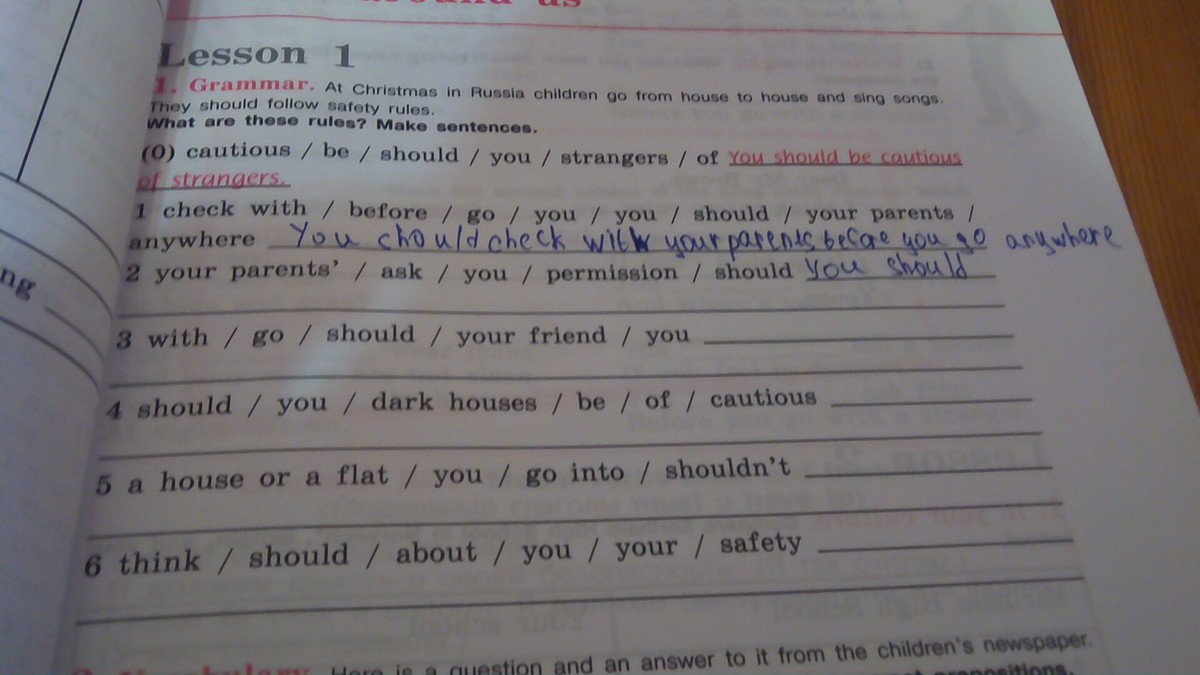 around us
Lesson 1
1. Grammar. At Christmas in Russia children go from house to house and sing songs.
They should follow safety rules.
What are these rules? Make sentences.
(0) cautious / be / should / you / strangers / of You should be cautious
of strangers.
1 check with / before / go / you / you / should / your parents /
anywhere You should check with your parents before you go anywhere
2 your parents' / ask / you / permission / should you should
3 with / go / should / your friend / you
4 should / you / dark houses / be / of / cautious
5 a house or a flat / you / go into / shouldn't
6 think / should / about / you / your / safety
ng
2. Vocabulary. Here is a question and an answer to it from the children's newspaper.
prepositions.